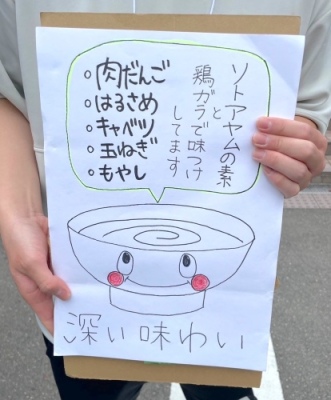 ソトアヤムの素
と
鶏ガラで味つけ
してます
○肉だんご
○はるさめ
○キャベツ
○玉ねぎ
○もやし
深い味わい